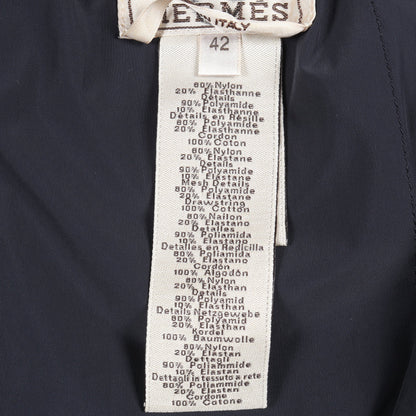 HERMÈS
42
80% Nylon
20% Elasthanne
Détails
90% Polyamide
10% Elasthanne
Détails en Résille
80% Polyamide
20% Elasthanne
Cordon
100% Coton
80% Nylon
20% Elastane
Details
90% Polyamide
10% Elastane
Mesh Details
80% Polyamide
20% Elastane
Drawstring
100% Cotton
80% Nailon
20% Elastano
Detalles
90% Poliamida
10% Elastano
Detalles en Redicilla
80% Poliamida
20% Elastano
Cordón
100% Algodón
80% Nylon
20% Elasthan
Details
90% Polyamid
10% Elasthan
Details Netzgewebe
80% Polyamid
20% Elasthan
Kordel
100% Baumwolle
80% Nylon
20% Elastan
Dettagli
90% Poliammide
10% Elastan
Dettagli in tessuto a rete
80% Poliammide
20% Elastan
Cordone
100% Cotone